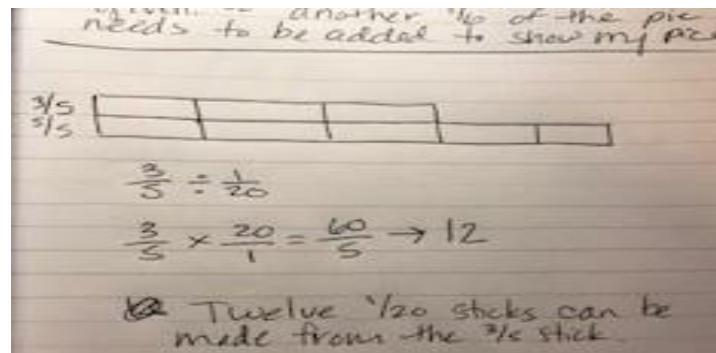 another 1/6 of the pie
needs to be added to show my
3/5
5/5
3/5 ÷ 1/20
3/5 × 20/1 = 60/5 → 12
Twelve 1/20 sticks can be
made from the 3/5 stick.